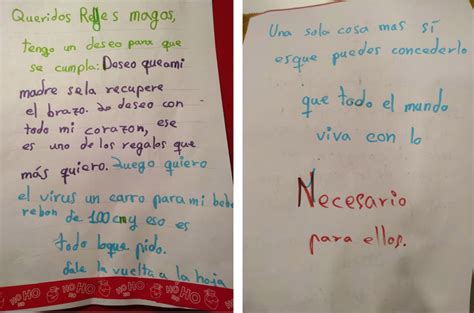 Queridos Reyes magos,
tengo un deseo para que
se cumpla: Deseo que a mi
madre se la recupere
el brazo. Lo deseo con
todo mi corazon, ese
es uno de los regalos que
más quiero. Luego quiero
el virus un carro para mi bebe
rebon de 100cm y eso es
todo loque pido.
dale la vuelta a la hoja
HO HO HO
Una sola cosa mas sí
esque puedes concederlo
que todo el mundo
viva con lo
Necesario
para ellos.